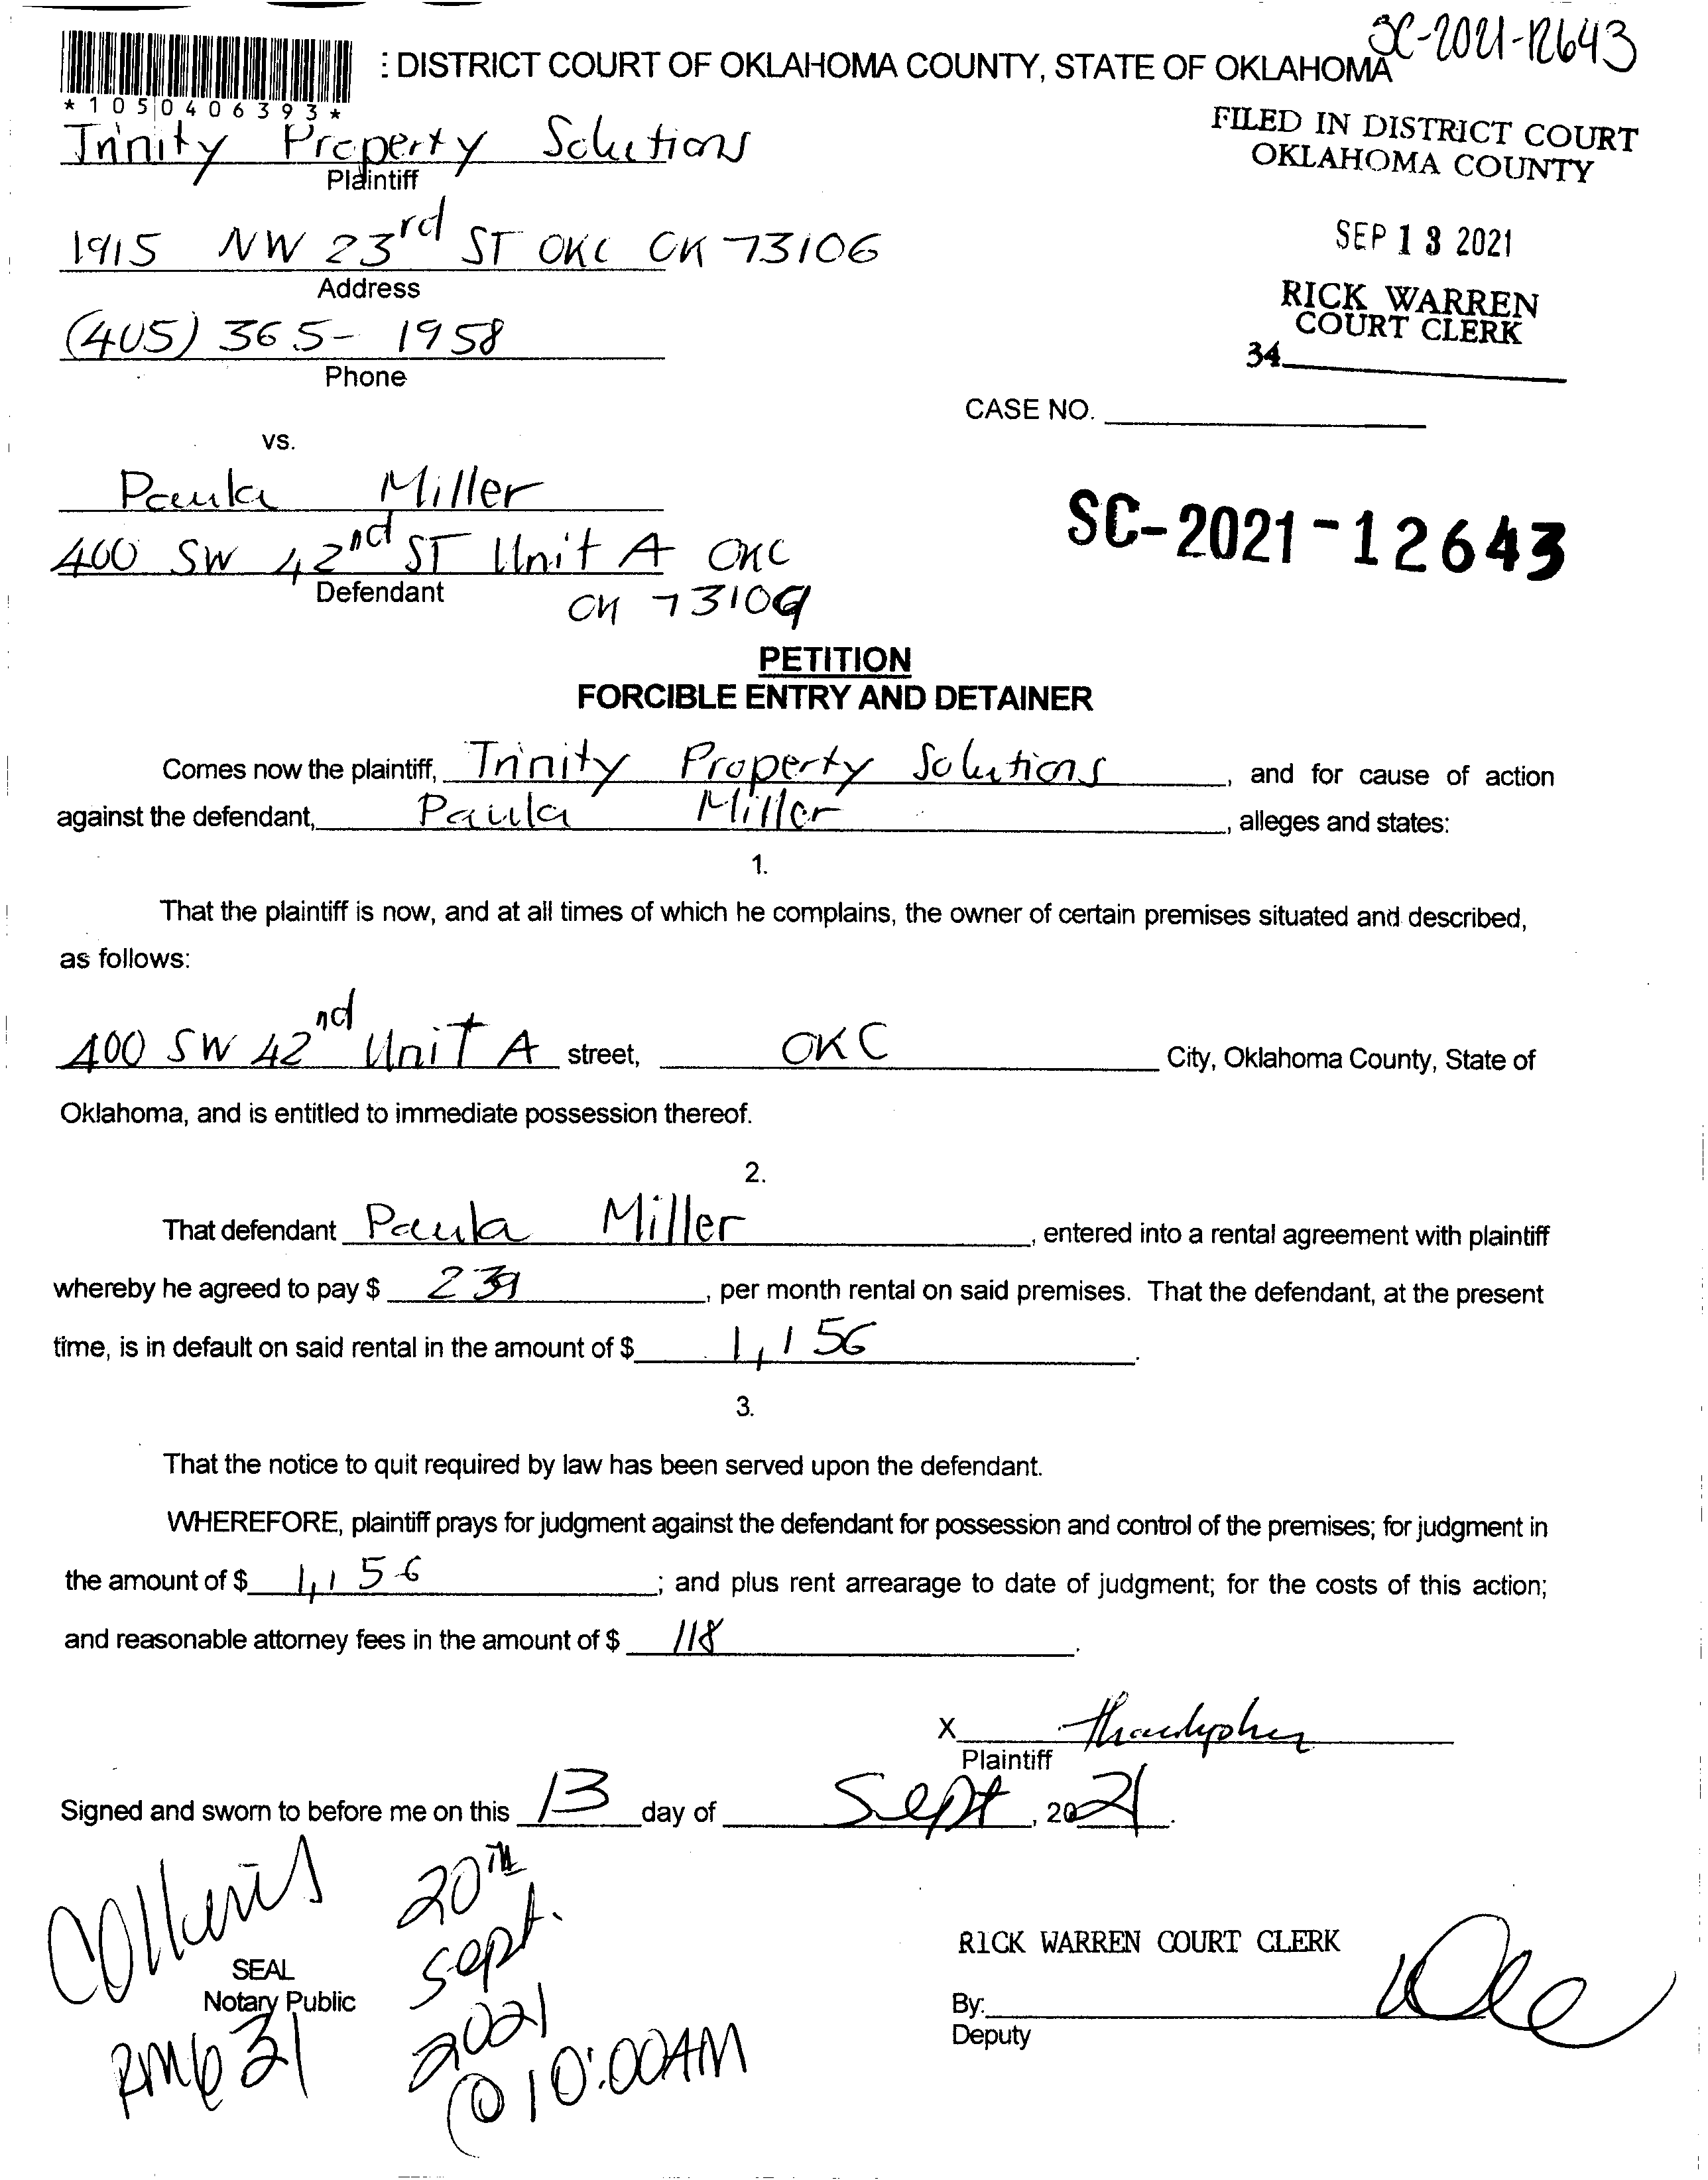 SC-2021-12643
: DISTRICT COURT OF OKLAHOMA COUNTY, STATE OF OKLAHOMA
*1050406393*
Trinity Property Solutions
Plaintiff
FILED IN DISTRICT COURT
OKLAHOMA COUNTY
1915 NW 23rd ST OKC OK 73106
Address
SEP 13 2021
(405) 365-1958
Phone
RICK WARREN
COURT CLERK
34
CASE NO.
vs.
Paula Miller
400 SW 42nd ST Unit A OKC
Defendant
OK 73109
SC-2021-12643
PETITION
FORCIBLE ENTRY AND DETAINER
Comes now the plaintiff, Trinity Property Solutions, and for cause of action
against the defendant, Paula Miller, alleges and states:
1.
That the plaintiff is now, and at all times of which he complains, the owner of certain premises situated and described,
as follows:
400 SW 42nd Unit A street, OKC City, Oklahoma County, State of
Oklahoma, and is entitled to immediate possession thereof.
2.
That defendant Paula Miller, entered into a rental agreement with plaintiff
whereby he agreed to pay $ 239, per month rental on said premises. That the defendant, at the present
time, is in default on said rental in the amount of $ 1,156.
3.
That the notice to quit required by law has been served upon the defendant.
WHEREFORE, plaintiff prays for judgment against the defendant for possession and control of the premises; for judgment in
the amount of $ 1,156; and plus rent arrearage to date of judgment; for the costs of this action;
and reasonable attorney fees in the amount of $ 118.
X
Plaintiff
Signed and sworn to before me on this 13 day of Sept, 2021.
20TH
Sept.
2021
@ 10:00AM
SEAL
Notary Public
RM 631
RICK WARREN COURT CLERK
By:
Deputy